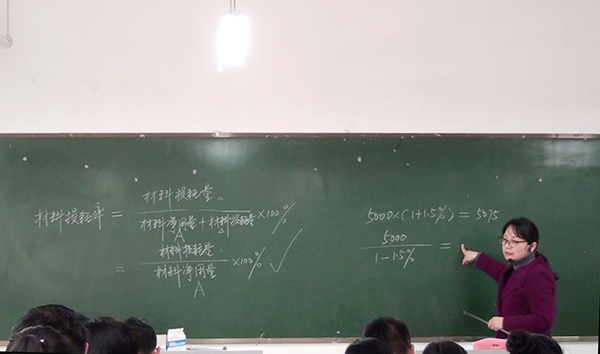 材料损耗率 = 材料损耗量 / 材料净用量 + 材料损耗量 × 100%
A
= 材料损耗量 / 材料净用量 × 100% ✓
A
5000×(1+1.5%) = 5075
5000 / 1-1.5% =